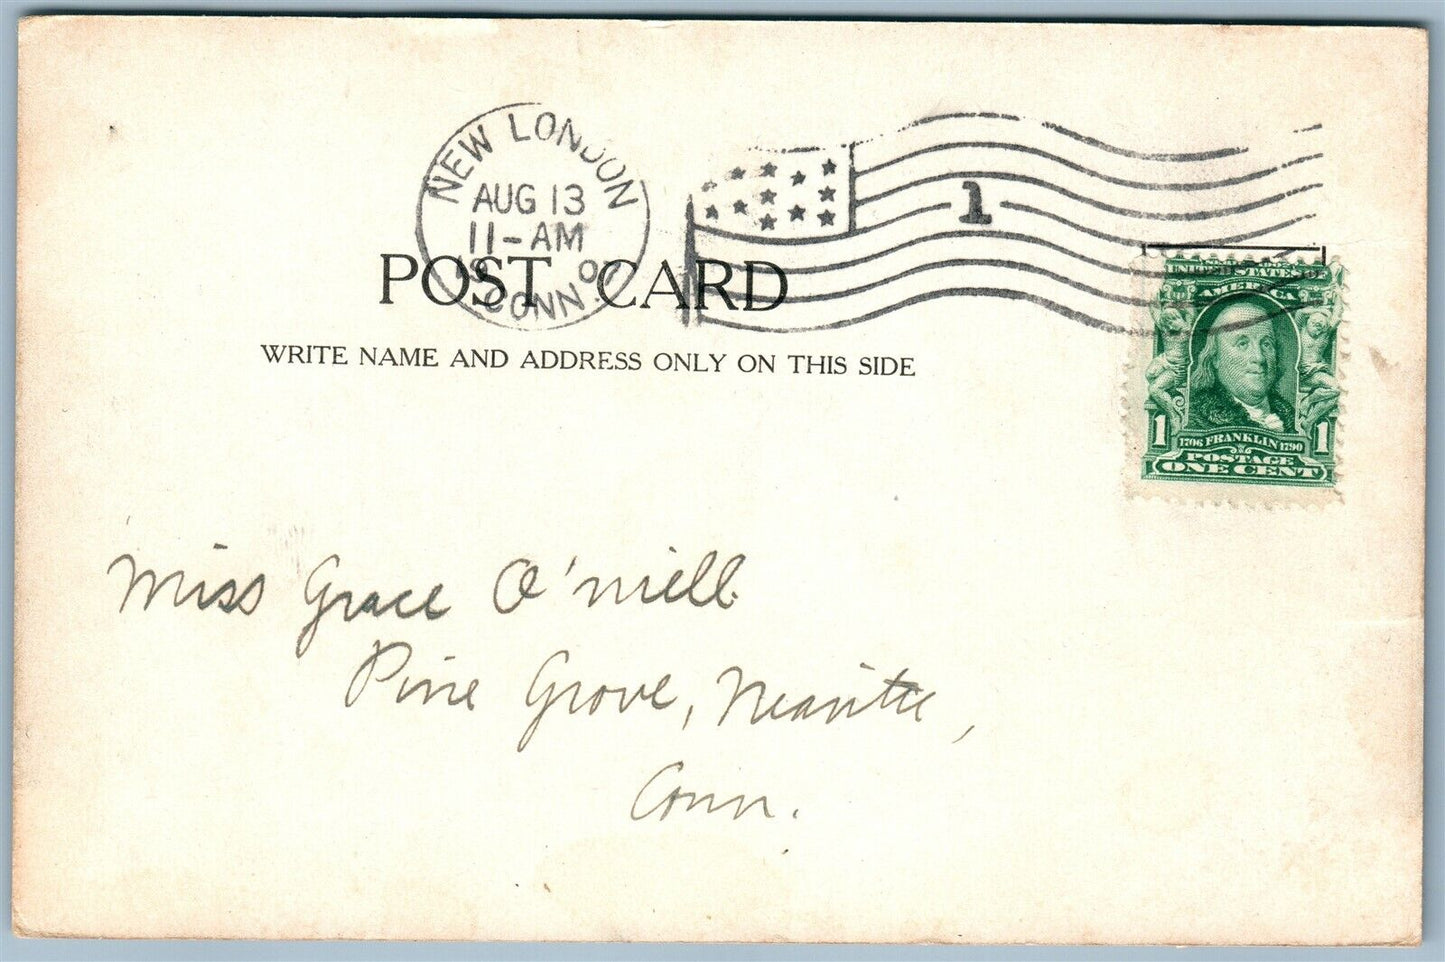 NEW LONDON
AUG 13
11-AM
CONN.
1
POST CARD
WRITE NAME AND ADDRESS ONLY ON THIS SIDE
UNITED STATES OF
AMERICA
1 1706 FRANKLIN 1790 1
POSTAGE
ONE CENT
Miss Grace O'niell.
Pine Grove, Niantic,
Conn.